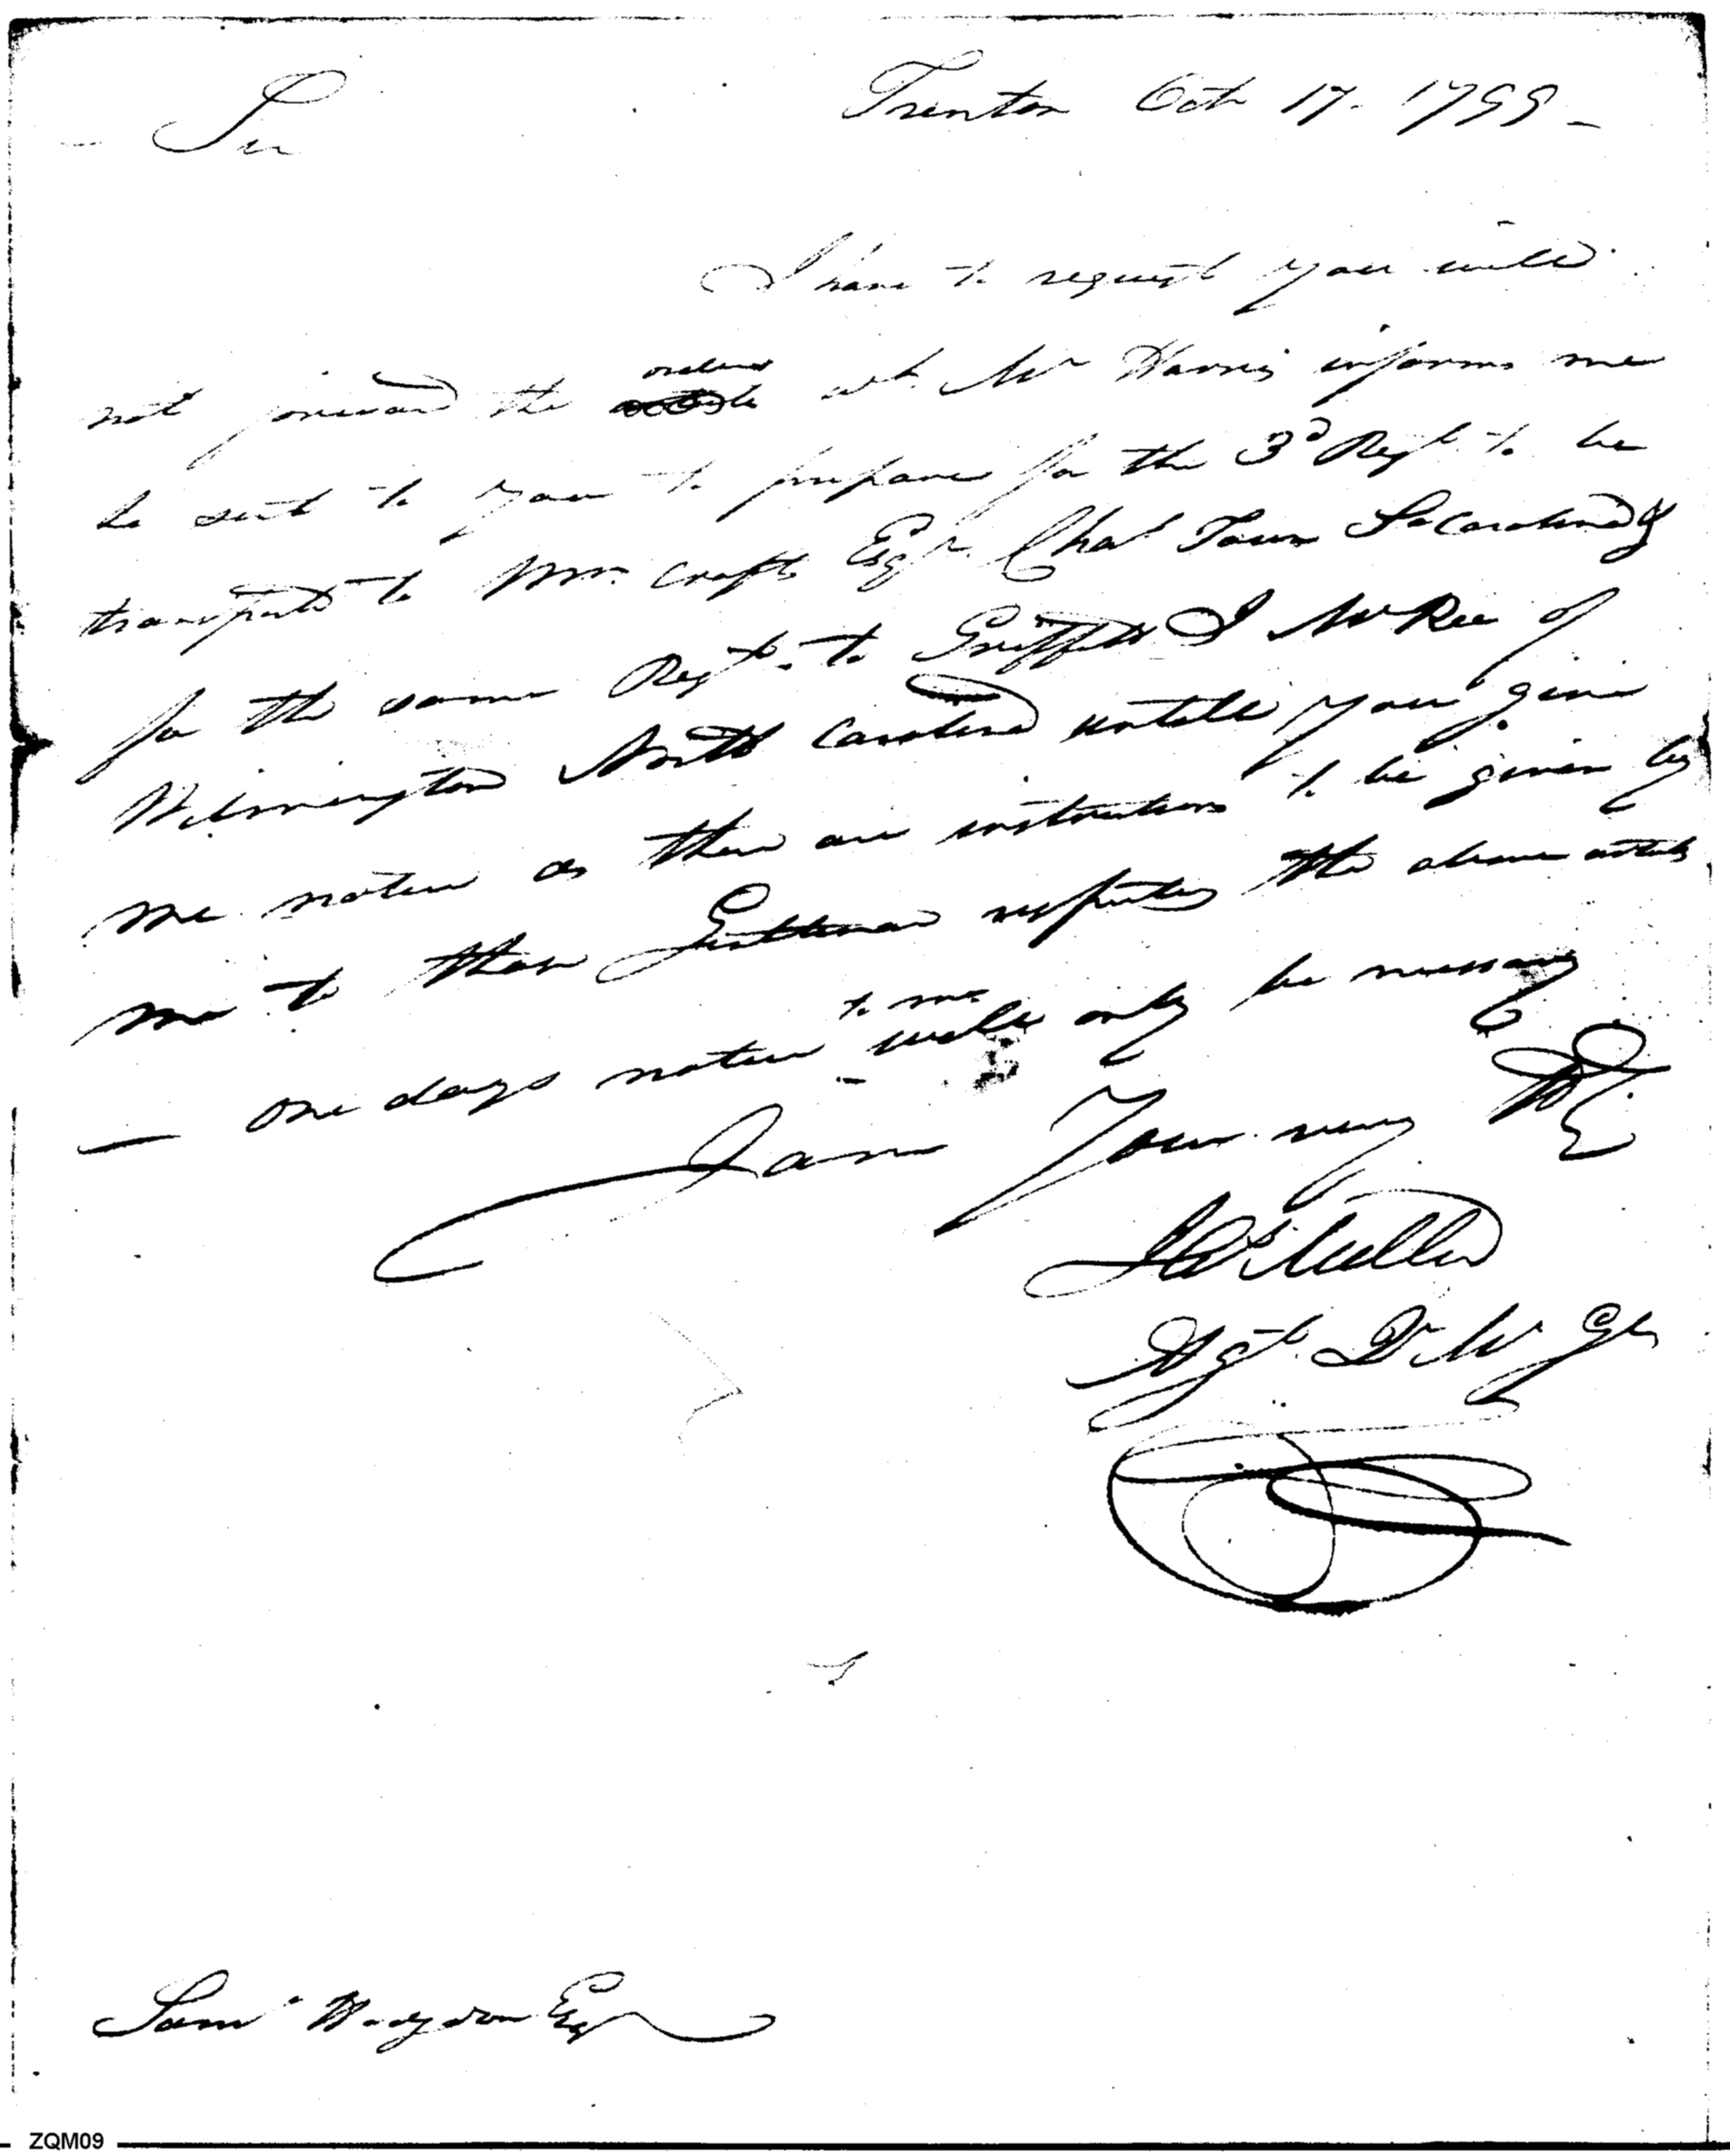 Trenton Oct 17. 1799 -
Sir
I have to request you will
not forward the orders wh. Mr Harris informs me
he sent to you to prepare for the 3d Regt. to be
transported to Wm. Crafts Esqr. Chas Town So Carolina &
for the same Regt. to Griffith J McRee of
Wilmington North Carolina untill you give
me notice as there are instructions to be given by
me to these Gentleman respecting the above articles
- One days notice to me will only be necessary
I am Your very
Agt. Dr W
Saml Hodgdon Esqr
ZQM09